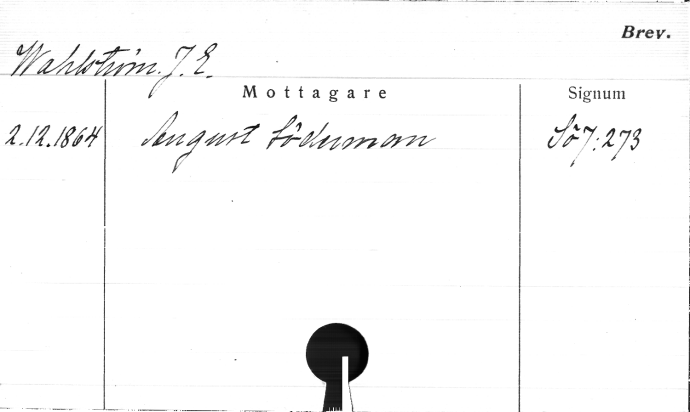 Brev.
Wahlström. J. E.
Mottagare
Signum
2.12.1864 August Söderman Sö 7:273